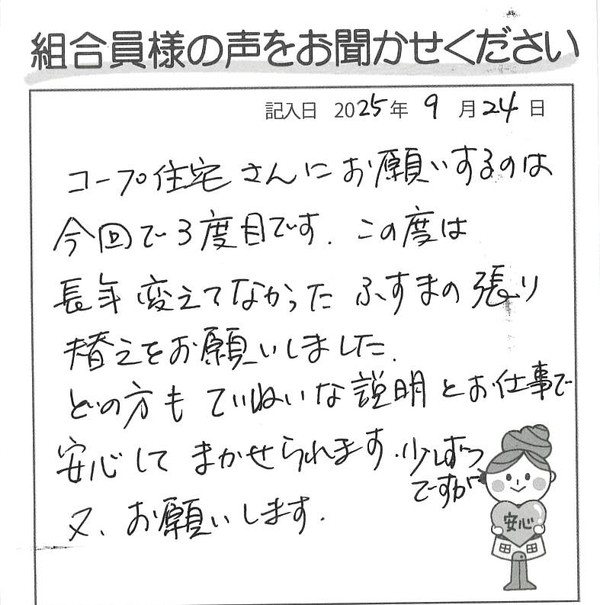 組合員様の声をお聞かせください
記入日 2025年 9月24日
コープ住宅さんにお願いするのは
今回で3度目です. この度は
長年変えてなかったふすまの張り
替えをお願いしました.
どの方もていねいな説明とお仕事で
安心してまかせられます. 少しずつ
ですが
又、お願いします.
安心